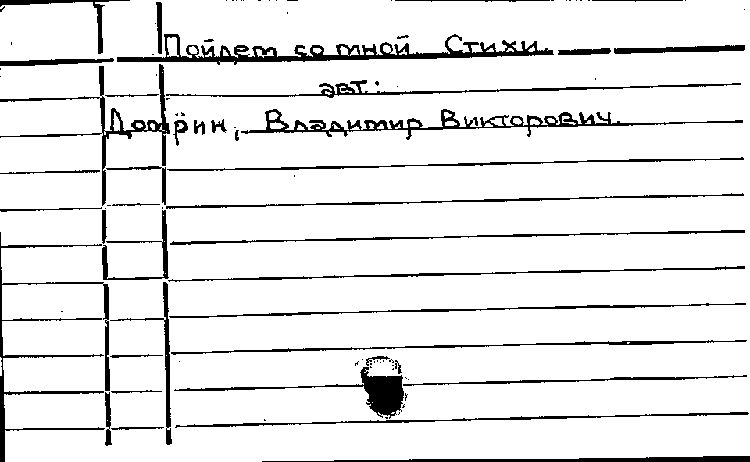 Пойдем со мной. Стихи.
авт.:
Владимир Викторович.